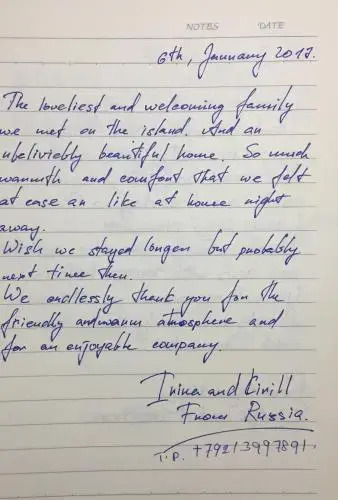 NOTES DATE
6th, January 2017.
The loveliest and welcoming family
we met on the island. And an
unbeliviebly beautiful home. So much
warmth and comfort that we felt
at ease an like at house right
away.
Wish we stayed longer but probably
next time then.
We endlessly thank you for the
friendly and warm atmosphere and
for an enjoyable company.
Irina and Kirill
From Russia.
T.P. +79213997891.